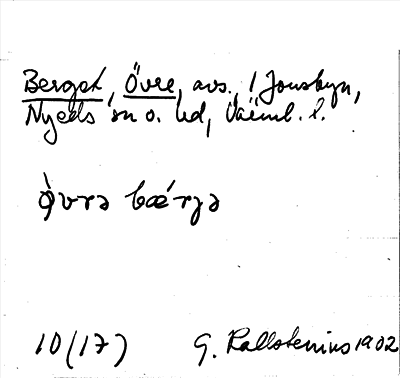 Berget, Övre, avs., i Jonsbyn,
Nyeds sn o. hd, Värml. l.
ø̀vrə bærjə
10(17) G. Kallstenius 1902